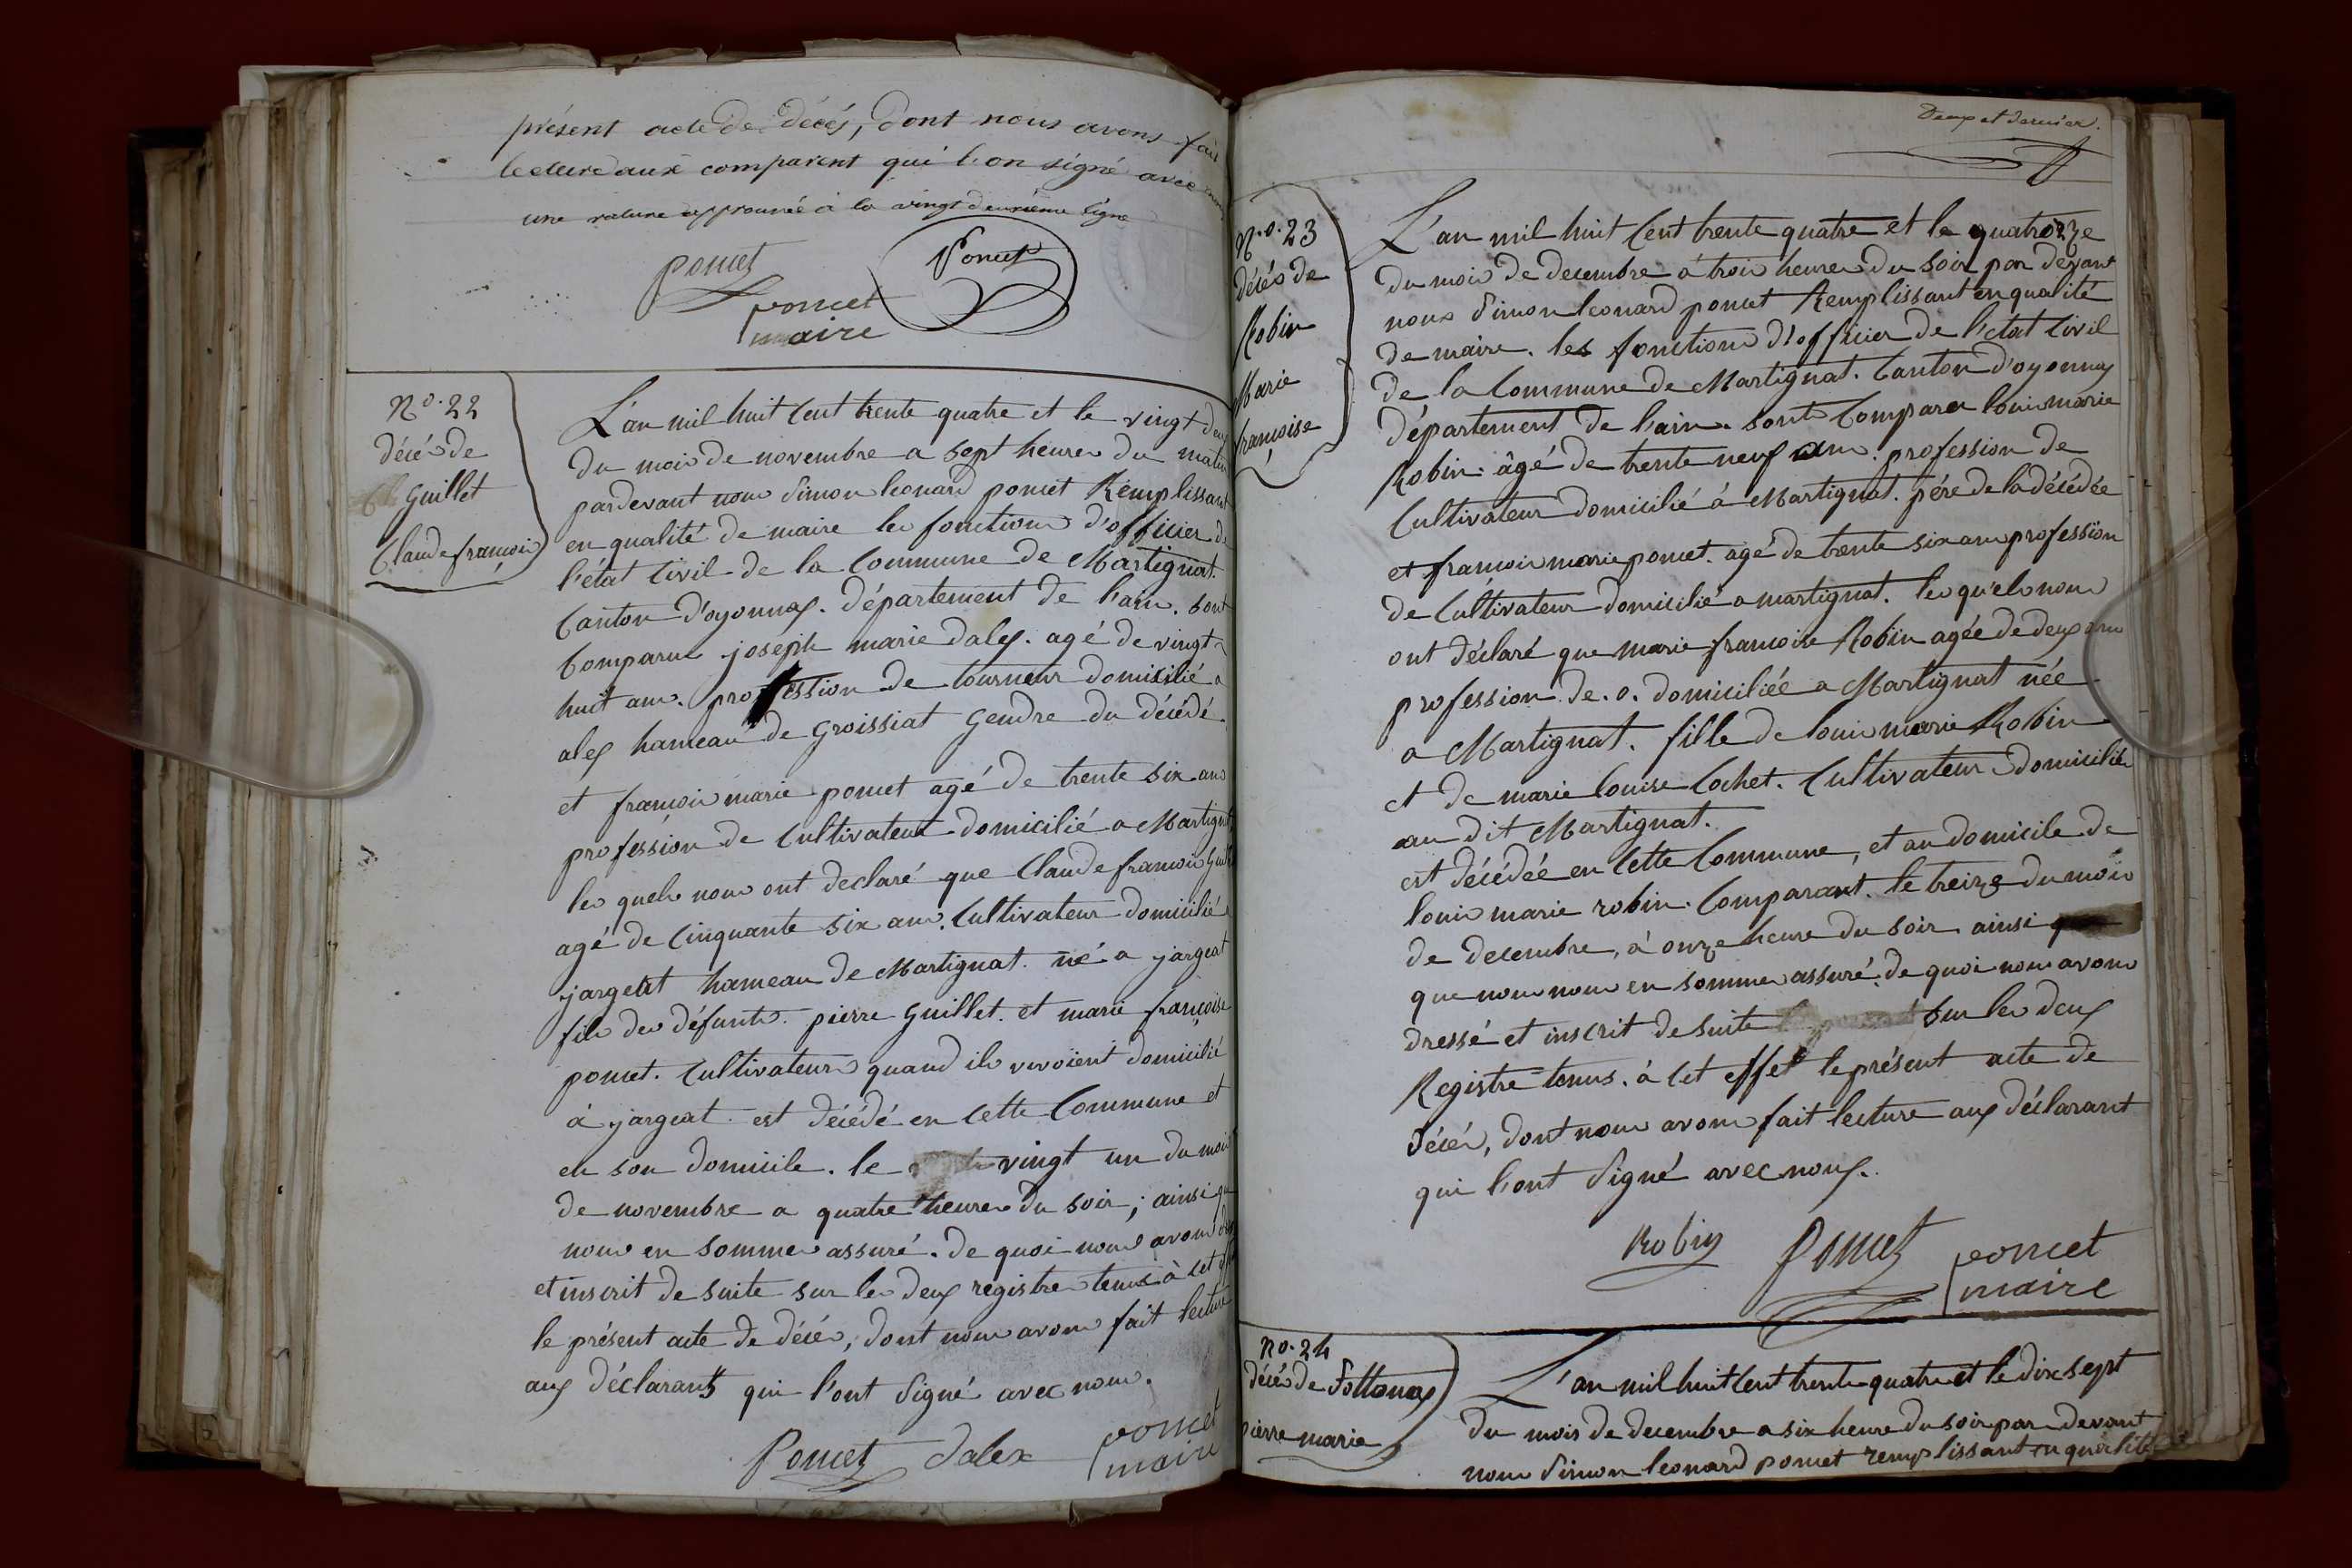 présent acte de décés, dont nous avons fait
lecture aux comparent qui l'on signé avec nous
une rature approuvée à la vingt deuxième ligne
Poncet
Poncet
poncet
maire
N.o. 22
décés de
Guillet
Claude françois
L'an mil huit cent trente quatre et le vingt deux
du mois de novembre a sept heures du matin
pardevant nous Simon leonard poncet Remplissant
en qualité de maire les fonctions d'officier de
l'état Civil de la Commune de Martignat.
Canton d'oyonnax. département de l'ain. sont
Comparus joseph marie dalex. agé de vingt
huit ans. profession de tourneur domicilié a
alex hameau de Groissiat Gendre du décédé
et françois marie poncet agé de trente six ans
profession de Cultivateur domicilié a Martignat
les quels nous ont declaré que Claude françois Guillet
agé de Cinquante six ans. Cultivateur domicilié
jargeat hameau de Martignat. né a jargeat
fils des défunts. pierre Guillet. et marie françoise
poncet. Cultivateurs quand ils vivoient domicilié
à jargeat. est décédé en cette Commune et
en son domicile. le vingt un du mois
de novembre a quatre heures du soir; ainsi que
nous en sommes assuré. de quoi nous avons
et inscrit de suite sur les deux registres tenus à cet
le présent acte de décés, dont nous avons fait lecture
aux déclarants qui l'ont Signé avec nous.
Poncet dalex poncet
maire
Deux et dernier.
N.o. 23
décés de
Robin
Marie
françoise
L'an mil huit Cent trente quatre et le quatorze
du mois de decembre à trois heures du soir par devant
nous Simon leonard poncet Remplissant en qualité
de maire. les fonctions d'officier de l'état Civil
de la Commune de Martignat. Canton d'oyonnax
département de l'ain. sont Comparus louis marie
Robin. âgé de trente neuf ans. profession de
Cultivateur domicilié à Martignat. pére de la décédée
et françois marie poncet. agé de trente six ans profession
de Cultivateur domicilié a martignat. les quels nous
ont déclaré que marie francoise Robin agée de deux ans
profession de. o. domiciliée a Martignat née
a Martignat. fille de louis marie Robin
et de marie louise Cochet. Cultivateurs domiciliés
au dit Martignat.
est décédée en Cette Commune, et au domicile de
louis marie robin. Comparant. le treize du mois
de decembre, à onze heure du soir ainsi
que nous nous en sommes assuré. de quoi nous avons
dressé et inscrit de suite sur les deux
Registre tenus. à Cet effet le présent acte de
décés, dont nous avons fait lecture aux déclarant
qui l'ont Signé avec nous.
Robin Poncet poncet
maire
No. 24
décés de Sottonax
pierre marie
L'an mil huit Cent trente quatre et le dix sept
du mois de decembre a six heure du soir par devant
nous Simon leonard poncet remplissant en qualité